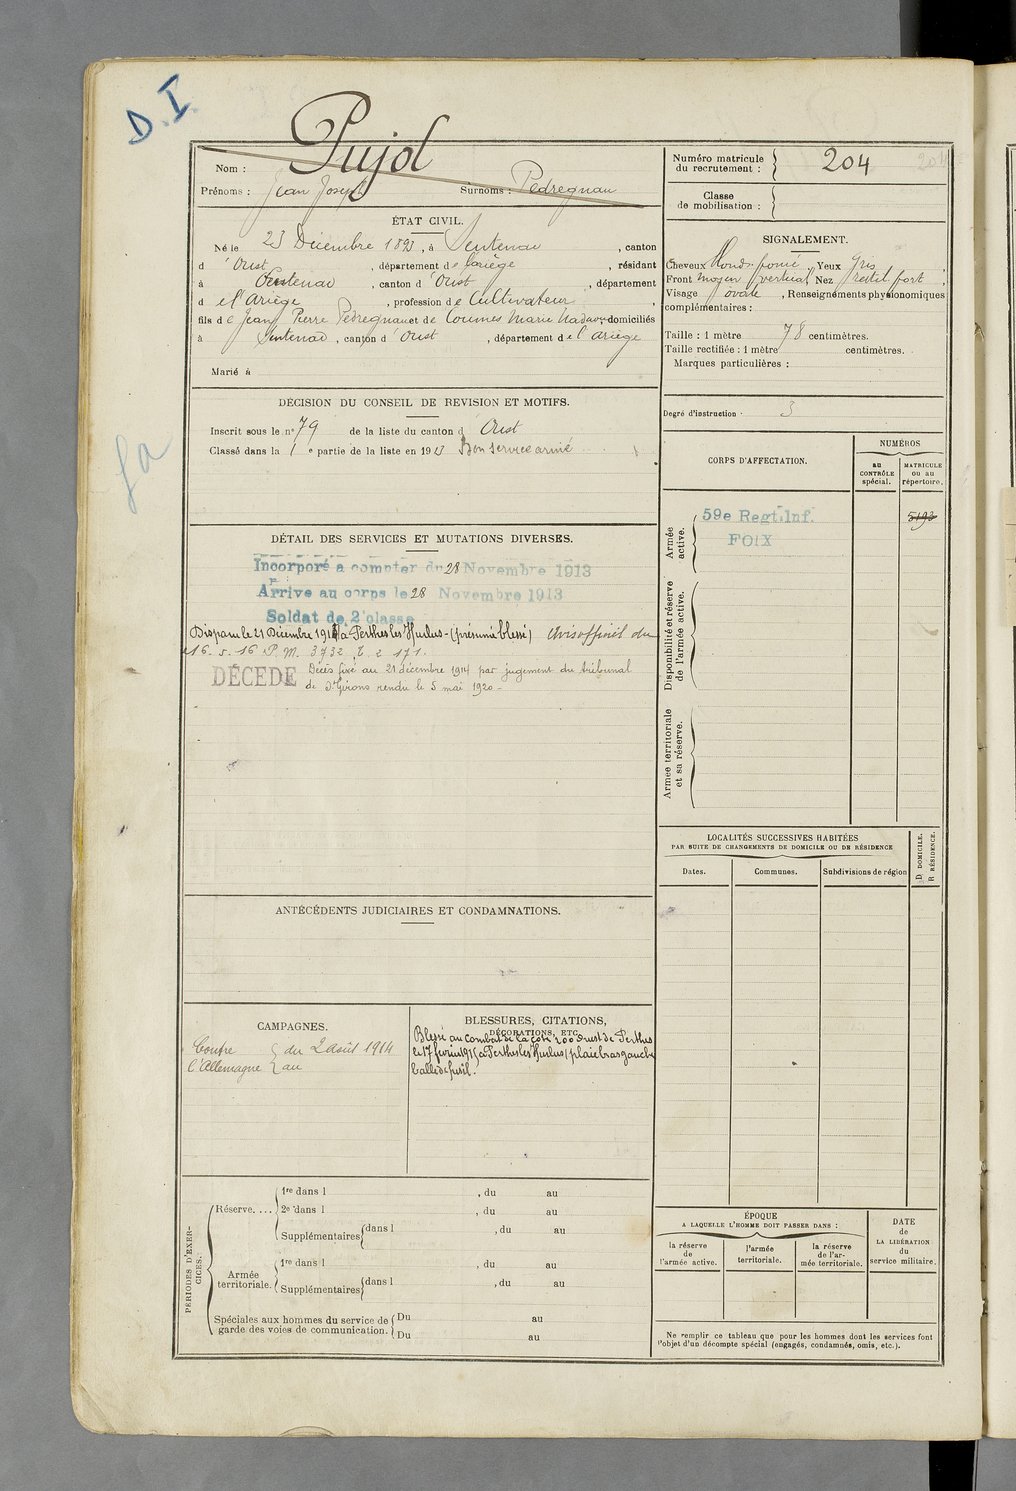 D.I.
Pujol
Nom :
Prénoms : Jean Joseph Surnoms : Pedregnau
Numéro matricule
du recrutement : 204
Classe
de mobilisation :
ÉTAT CIVIL.
Né le 23 Décembre 1893, à Sentenac, canton
d'Oust, département de l'ariège, résidant
à Sentenac, canton d'Oust, département
d e l'Ariège, profession de Cultivateur,
fils de Jean Pierre Pedregnau et de Coumes Marie domiciliés
à Sentenac, canton d'Oust, département de l'ariège
Marié à
SIGNALEMENT.
Cheveux blonds foncé, Yeux gris,
Front moyen vertical, Nez rectil fort,
Visage ovale, Renseignements physionomiques
complémentaires :
Taille : 1 mètre 78 centimètres.
Taille rectifiée : 1 mètre centimètres.
Marques particulières :
Degré d'instruction : 3
DÉCISION DU CONSEIL DE REVISION ET MOTIFS.
Inscrit sous le n° 79 de la liste du canton d'Oust
Classé dans la 1e partie de la liste en 1913 Bon service armé
CORPS D'AFFECTATION.
NUMÉROS
au
CONTRÔLE
spécial.
MATRICULE
ou au
répertoire.
Armée
active.
59e Regt. Inf.
FOIX
5193
Disponibilité et réserve
de l'armée active.
Armée territoriale
et sa réserve.
DÉTAIL DES SERVICES ET MUTATIONS DIVERSES.
Incorporé a compter du 28 Novembre 1913
Arrive au corps le 28 Novembre 1913
Soldat de 2e classe
Disparu le 21 Décembre 1914 à Perthes les Hurlus - (présumé blessé) avis officiel du
16. 5. 16 P. M. 3732
DÉCÉDÉ Décès fixé au 21 décembre 1914 par jugement du tribunal
de St Girons rendu le 5 mai 1920 -
LOCALITÉS SUCCESSIVES HABITÉES
PAR SUITE DE CHANGEMENTS DE DOMICILE OU DE RÉSIDENCE
D DOMICILE.
R RÉSIDENCE.
Dates.
Communes.
Subdivisions de région
ANTÉCÉDENTS JUDICIAIRES ET CONDAMNATIONS.
CAMPAGNES.
Contre
l'Allemagne
du 2 août 1914
au
BLESSURES, CITATIONS,
DÉCORATIONS, ETC.
Blessé au combat de la côte 200 ouest de Perthes
le 17 février 1915 à Perthes les Hurlus (plaie bras gauche
balle de fusil.
PÉRIODES D'EXERCICES.
Réserve....
1re dans l , du au
2e dans l , du au
Supplémentaires dans l , du au
Armée
territoriale.
1re dans l , du au
Supplémentaires dans l , du au
Spéciales aux hommes du service de
garde des voies de communication.
Du au
Du au
ÉPOQUE
A LAQUELLE L'HOMME DOIT PASSER DANS :
la réserve
de
l'armée active.
l'armée
territoriale.
la réserve
de l'ar-
mée territoriale.
DATE
de
LA LIBÉRATION
du
service militaire.
Ne remplir ce tableau que pour les hommes dont les services font
l'objet d'un décompte spécial (engagés, condamnés, omis, etc.).